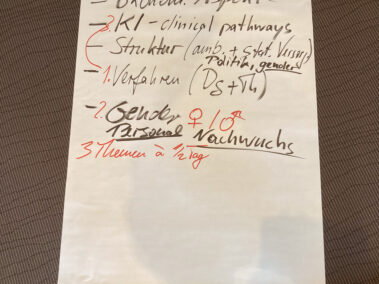 3. KI - clinical pathways
- Struktur (amb. + stat. Versorg.)
Politik, gender
- 1. Verfahren (Ds + Th)
- 2. Gender ♀ / ♂
Personal Nachwuchs
3 Themen à 1/2 Tag